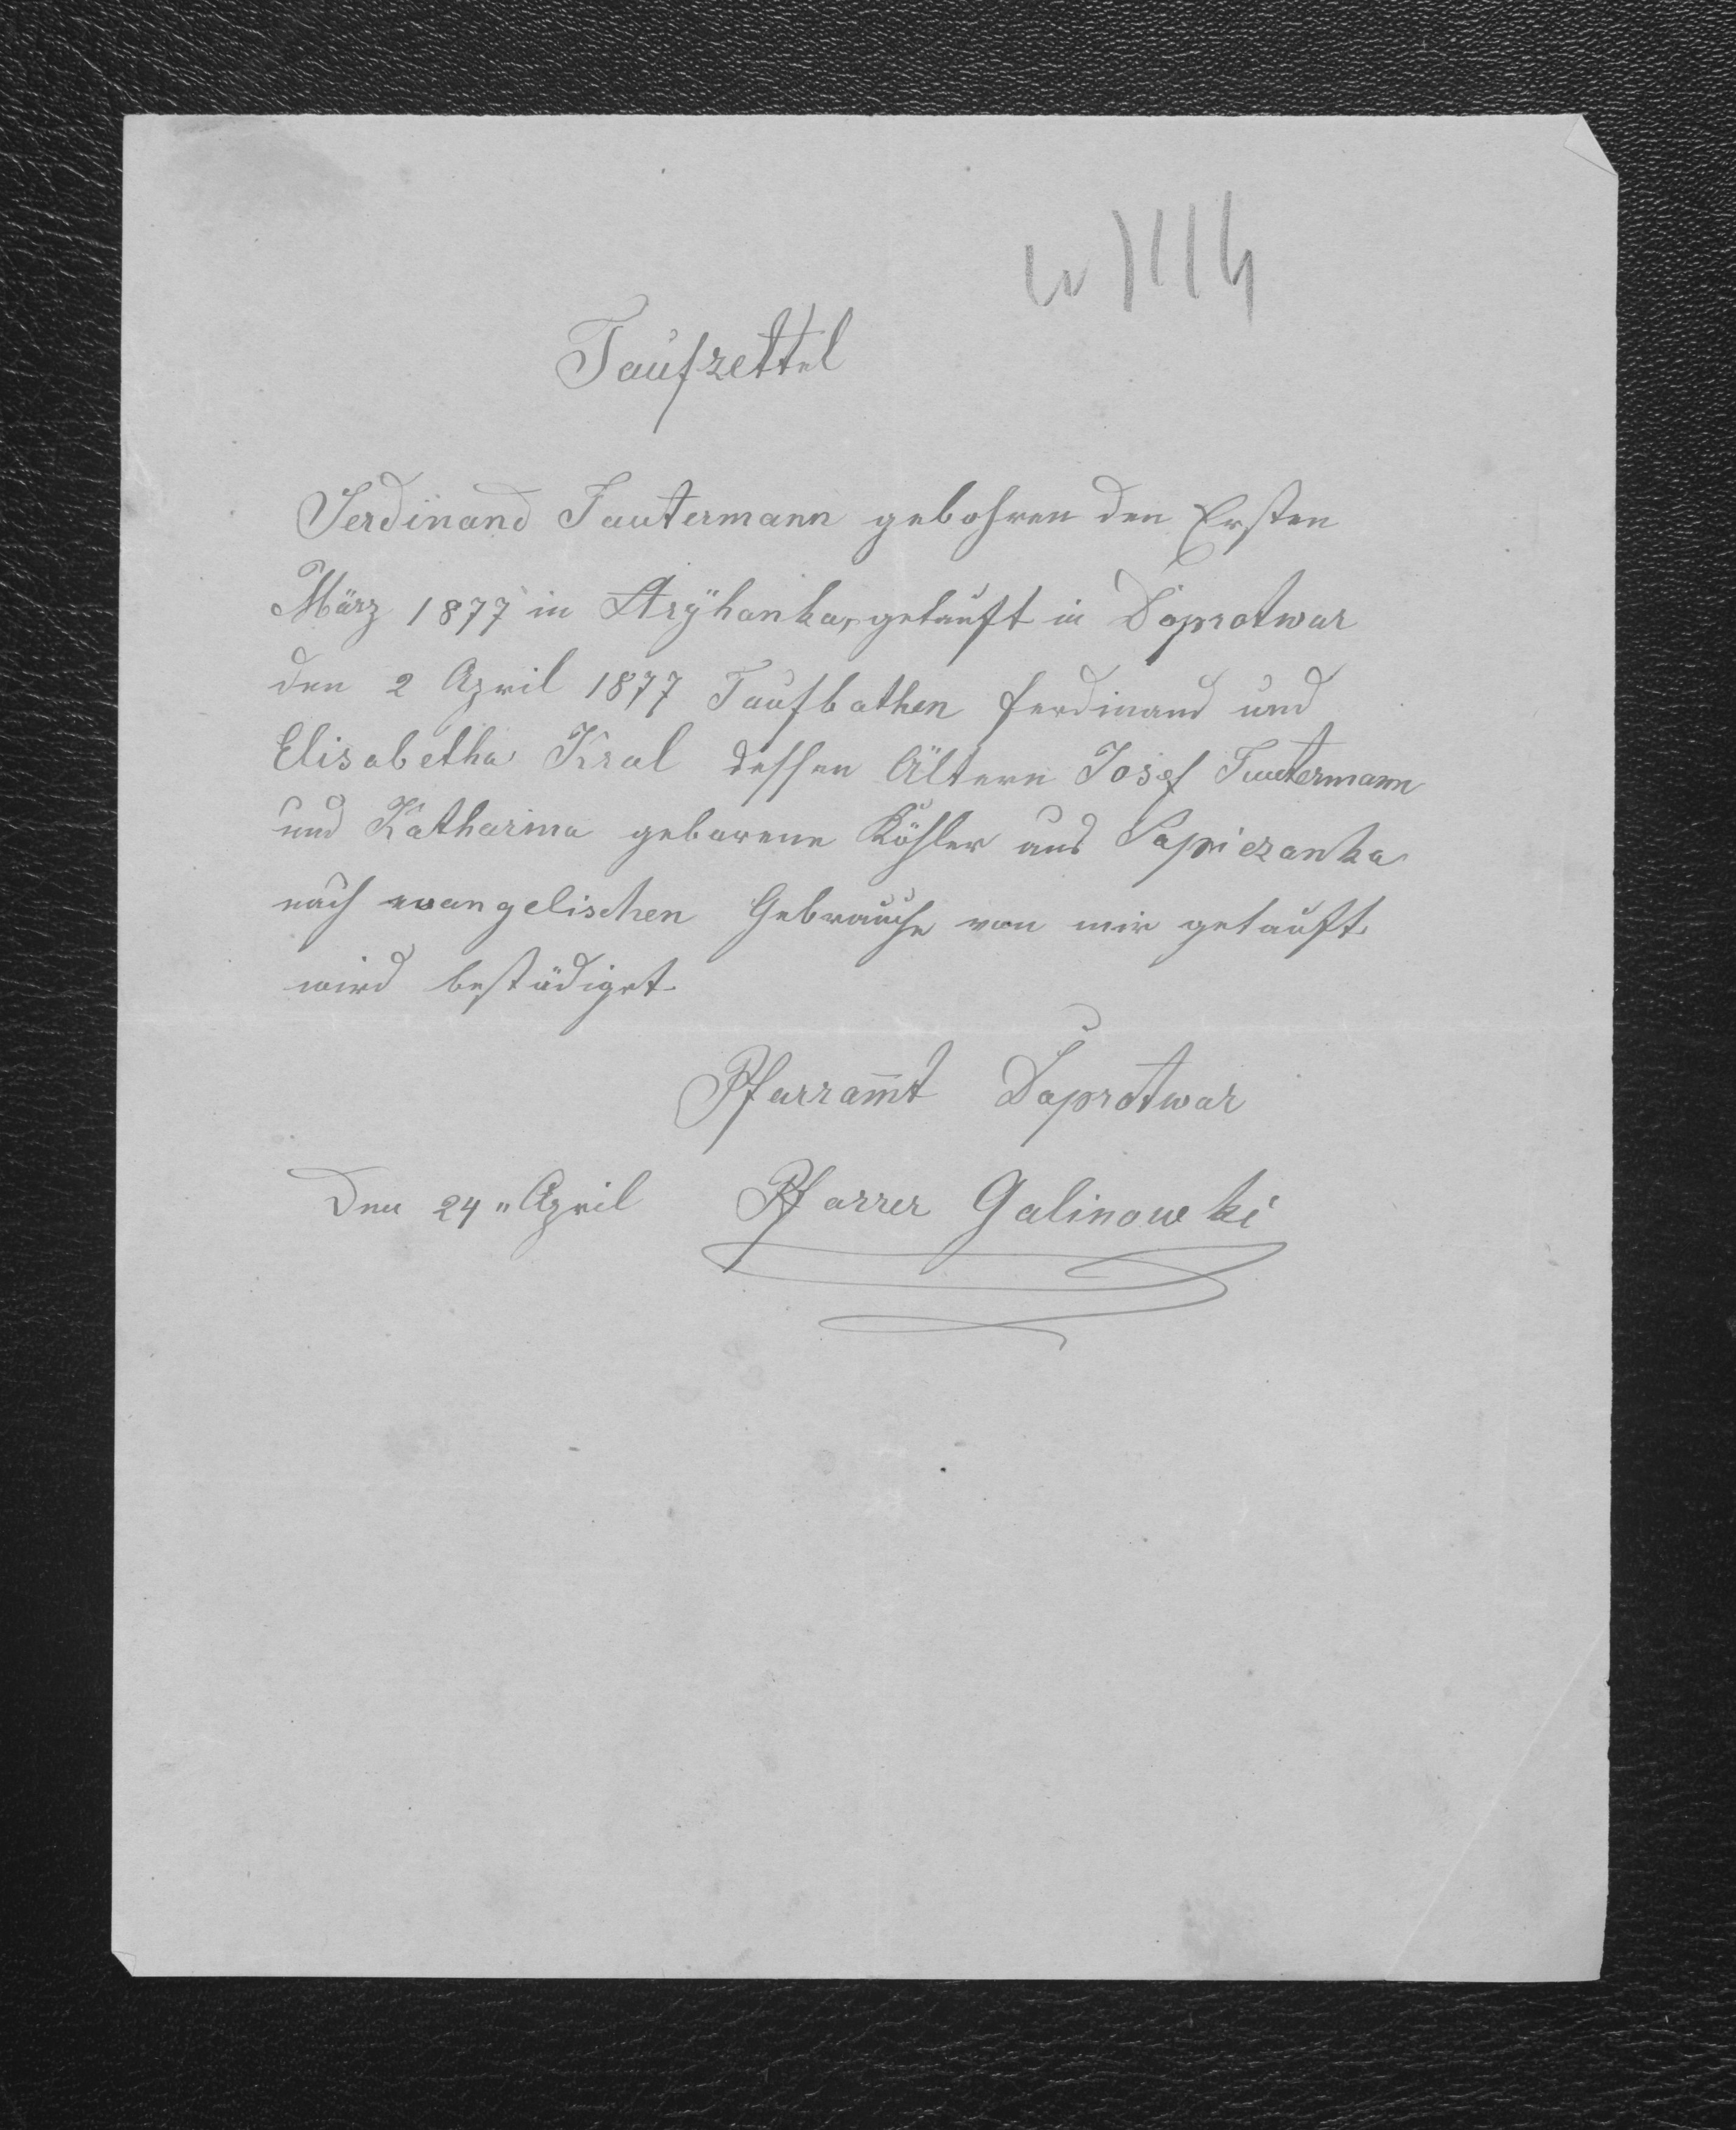 Taufzettel
Ferdinand Fautermann gebohren den Ersten
März 1877 in getauft in Doprotwar
den 2 April 1877 Taufbathen Ferdinand und
Elisabetha Kral dessen Ältern Josef Fautermann
und Katharina gebarene Köhler aus Sapiezanka
nach evangelischen Gebrauche von mir getauft
wird bestädiget
Pfarram̅t Doprotwar
Den 24 " April Pfarrer Galinowki